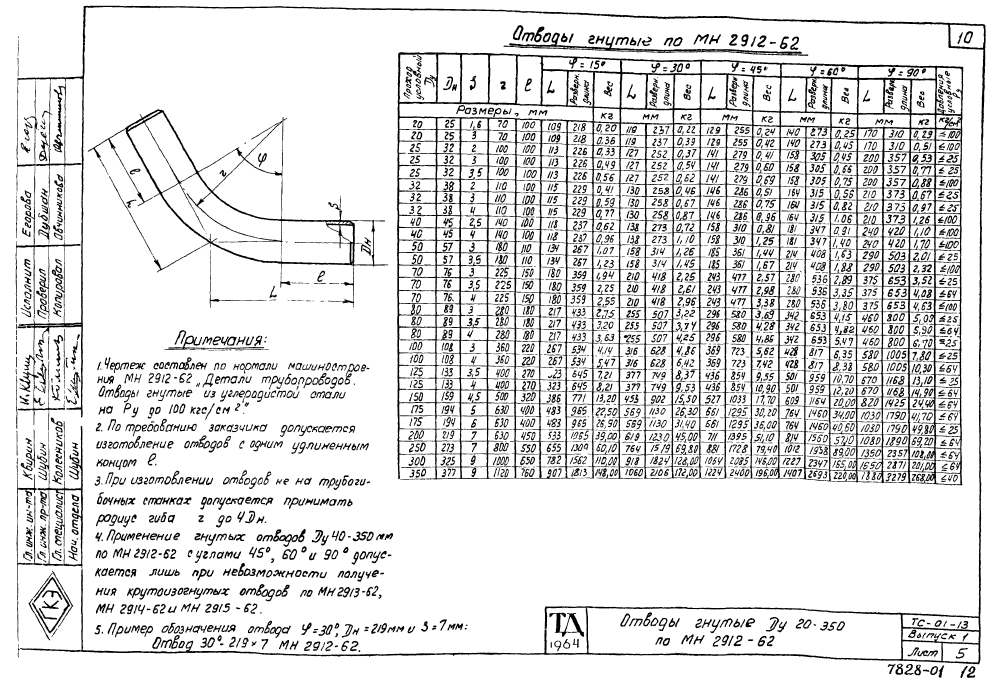 10
Отводы гнутые по МН 2912-62
Проход условный Ду | Дн | S | r | l | φ = 15° | φ = 30° | φ = 45° | φ = 60° | φ = 90° | Давления условные Ру
L | Разверн. длина | Вес | L | Разверн. длина | Вес | L | Разверн. длина | Вес | L | Разверн. длина | Вес | L | Разверн. длина | Вес
Размеры, мм | кг | мм | кг | мм | кг | мм | кг | мм | кг
20 25 1,6 70 100 109 218 0,20 119 237 0,22 129 255 0,24 140 273 0,25 170 310 0,29 ≤100
20 25 3 70 100 109 218 0,36 119 237 0,39 129 255 0,42 140 273 0,45 170 310 0,51 ≤100
25 32 2 100 100 113 226 0,33 127 252 0,37 141 279 0,41 158 305 0,45 200 357 0,53 ≤25
25 32 3 100 100 113 226 0,49 127 252 0,54 141 279 0,60 158 305 0,66 200 357 0,77 ≤25
25 32 3,5 100 100 113 226 0,56 127 252 0,62 141 279 0,69 158 305 0,75 200 357 0,88 ≤100
32 38 2 110 100 115 229 0,41 130 258 0,46 146 286 0,51 164 315 0,56 210 373 0,67 ≤25
32 38 3 110 100 115 229 0,59 130 258 0,67 146 286 0,75 164 315 0,82 210 373 0,97 ≤25
32 38 4 110 100 115 229 0,77 130 258 0,87 146 286 0,96 164 315 1.06 210 373 1,26 ≤100
40 45 2,5 140 100 118 237 0,62 138 273 0,72 158 310 0,81 181 347 0,91 240 420 1,10 ≤100
40 45 4 140 100 118 237 0,96 138 273 1,10 158 310 1,25 181 347 1,40 240 420 1,70 ≤100
50 57 3 180 110 134 267 1,07 158 314 1,26 185 361 1,44 214 408 1,63 290 503 2,01 ≤25
50 57 3,5 180 110 134 267 1,23 158 314 1,45 185 361 1,67 214 408 1,88 290 503 2,32 ≤100
70 76 3 225 150 180 359 1,94 210 418 2,25 243 477 2,57 280 536 2,89 375 653 3,52 ≤25
70 76 3,5 225 150 180 359 2,25 210 418 2,61 243 477 2,98 280 536 3,35 375 653 4,08 ≤64
70 76 4 225 150 180 359 2,55 210 418 2,96 243 477 3,38 280 536 3,80 375 653 4,63 ≤100
80 89 3 280 180 217 433 2,75 255 507 3,22 296 580 3,69 342 653 4,15 460 800 5,09 ≤25
80 89 3,5 280 180 217 433 3,20 255 507 3,74 296 580 4,28 342 653 4,82 460 800 5,90 ≤64
80 89 4 280 180 217 433 3,63 255 507 4,25 296 580 4,86 342 653 5,47 460 800 6,70 ≤25
100 108 3 360 220 267 534 4,14 316 628 4,86 369 723 5,62 428 817 6,35 580 1005 7,80 ≤25
100 108 4 360 220 267 534 5,47 316 628 6,42 369 723 7,42 428 817 8,38 580 1005 10,30 ≤64
125 133 3,5 400 270 323 645 7,21 377 749 8,37 436 854 9,55 501 959 10,70 670 1168 13,10 ≤25
125 133 4 400 270 323 645 8,21 377 749 9,53 436 854 10,90 501 959 12,20 670 1168 14,90 ≤64
150 159 4,5 500 320 386 771 13,20 453 902 15,50 527 1033 17,70 609 1164 20,00 820 1425 24,40 ≤64
175 194 5 630 400 483 965 22,50 569 1130 26,30 661 1295 30,20 764 1460 34,00 1030 1790 41,70 ≤64
175 194 6 630 400 483 965 26,90 569 1130 31,40 661 1295 36,00 764 1460 40,60 1030 1790 49,80 ≤25
200 219 7 630 450 533 1065 39,00 619 1230 45,00 711 1395 51,10 814 1560 57,10 1080 1890 69,20 ≤64
250 273 7 800 550 655 1309 60,10 764 1519 69,80 881 1728 79,40 1012 1938 89,00 1350 2357 108,00 ≤64
300 325 9 1000 650 782 1562 110,00 918 1824 128,00 1064 2085 146,00 1227 2347 165,00 1650 2871 201,00 ≤64
350 377 9 1120 750 907 1813 148,00 1060 2106 172,00 1224 2400 196,00 1407 2693 220,00 1880 3279 268,00 ≤40
φ
r
l
L
S
Дн
l
L
Примечания:
1. Чертеж составлен по нормали машиностроения МН 2912-62 „Детали трубопроводов.
Отводы гнутые из углеродистой стали
на Ру до 100 кгс/см²."
2. По требованию заказчика допускается
изготовление отводов с одним удлиненным
концом l.
3. При изготовлении отводов не на трубогибочных станках допускается принимать
радиус гиба r до 4Дн.
4. Применение гнутых отводов Ду 40-350 мм
по МН 2912-62 с углами 45°, 60° и 90° допускается лишь при невозможности получения крутоизогнутых отводов по МН 2913-62,
МН 2914-62 и МН 2915-62.
5. Пример обозначения отвода φ=30°, Дн=219мм и S=7мм:
Отвод 30°-219×7 МН 2912-62.
Гл. инж. ин-та Гл. инж. пр-та Гл. специалист Нач. отдела
Шубин Колесников Шубин
Исполнит Проверил Копировал
Егорова Дубшан Овчинникова
ГКЭ
ТД
1964
Отводы гнутые Ду 20-350
по МН 2912-62
ТС-01-13
Выпуск 1
Лист 5
7828-01 12